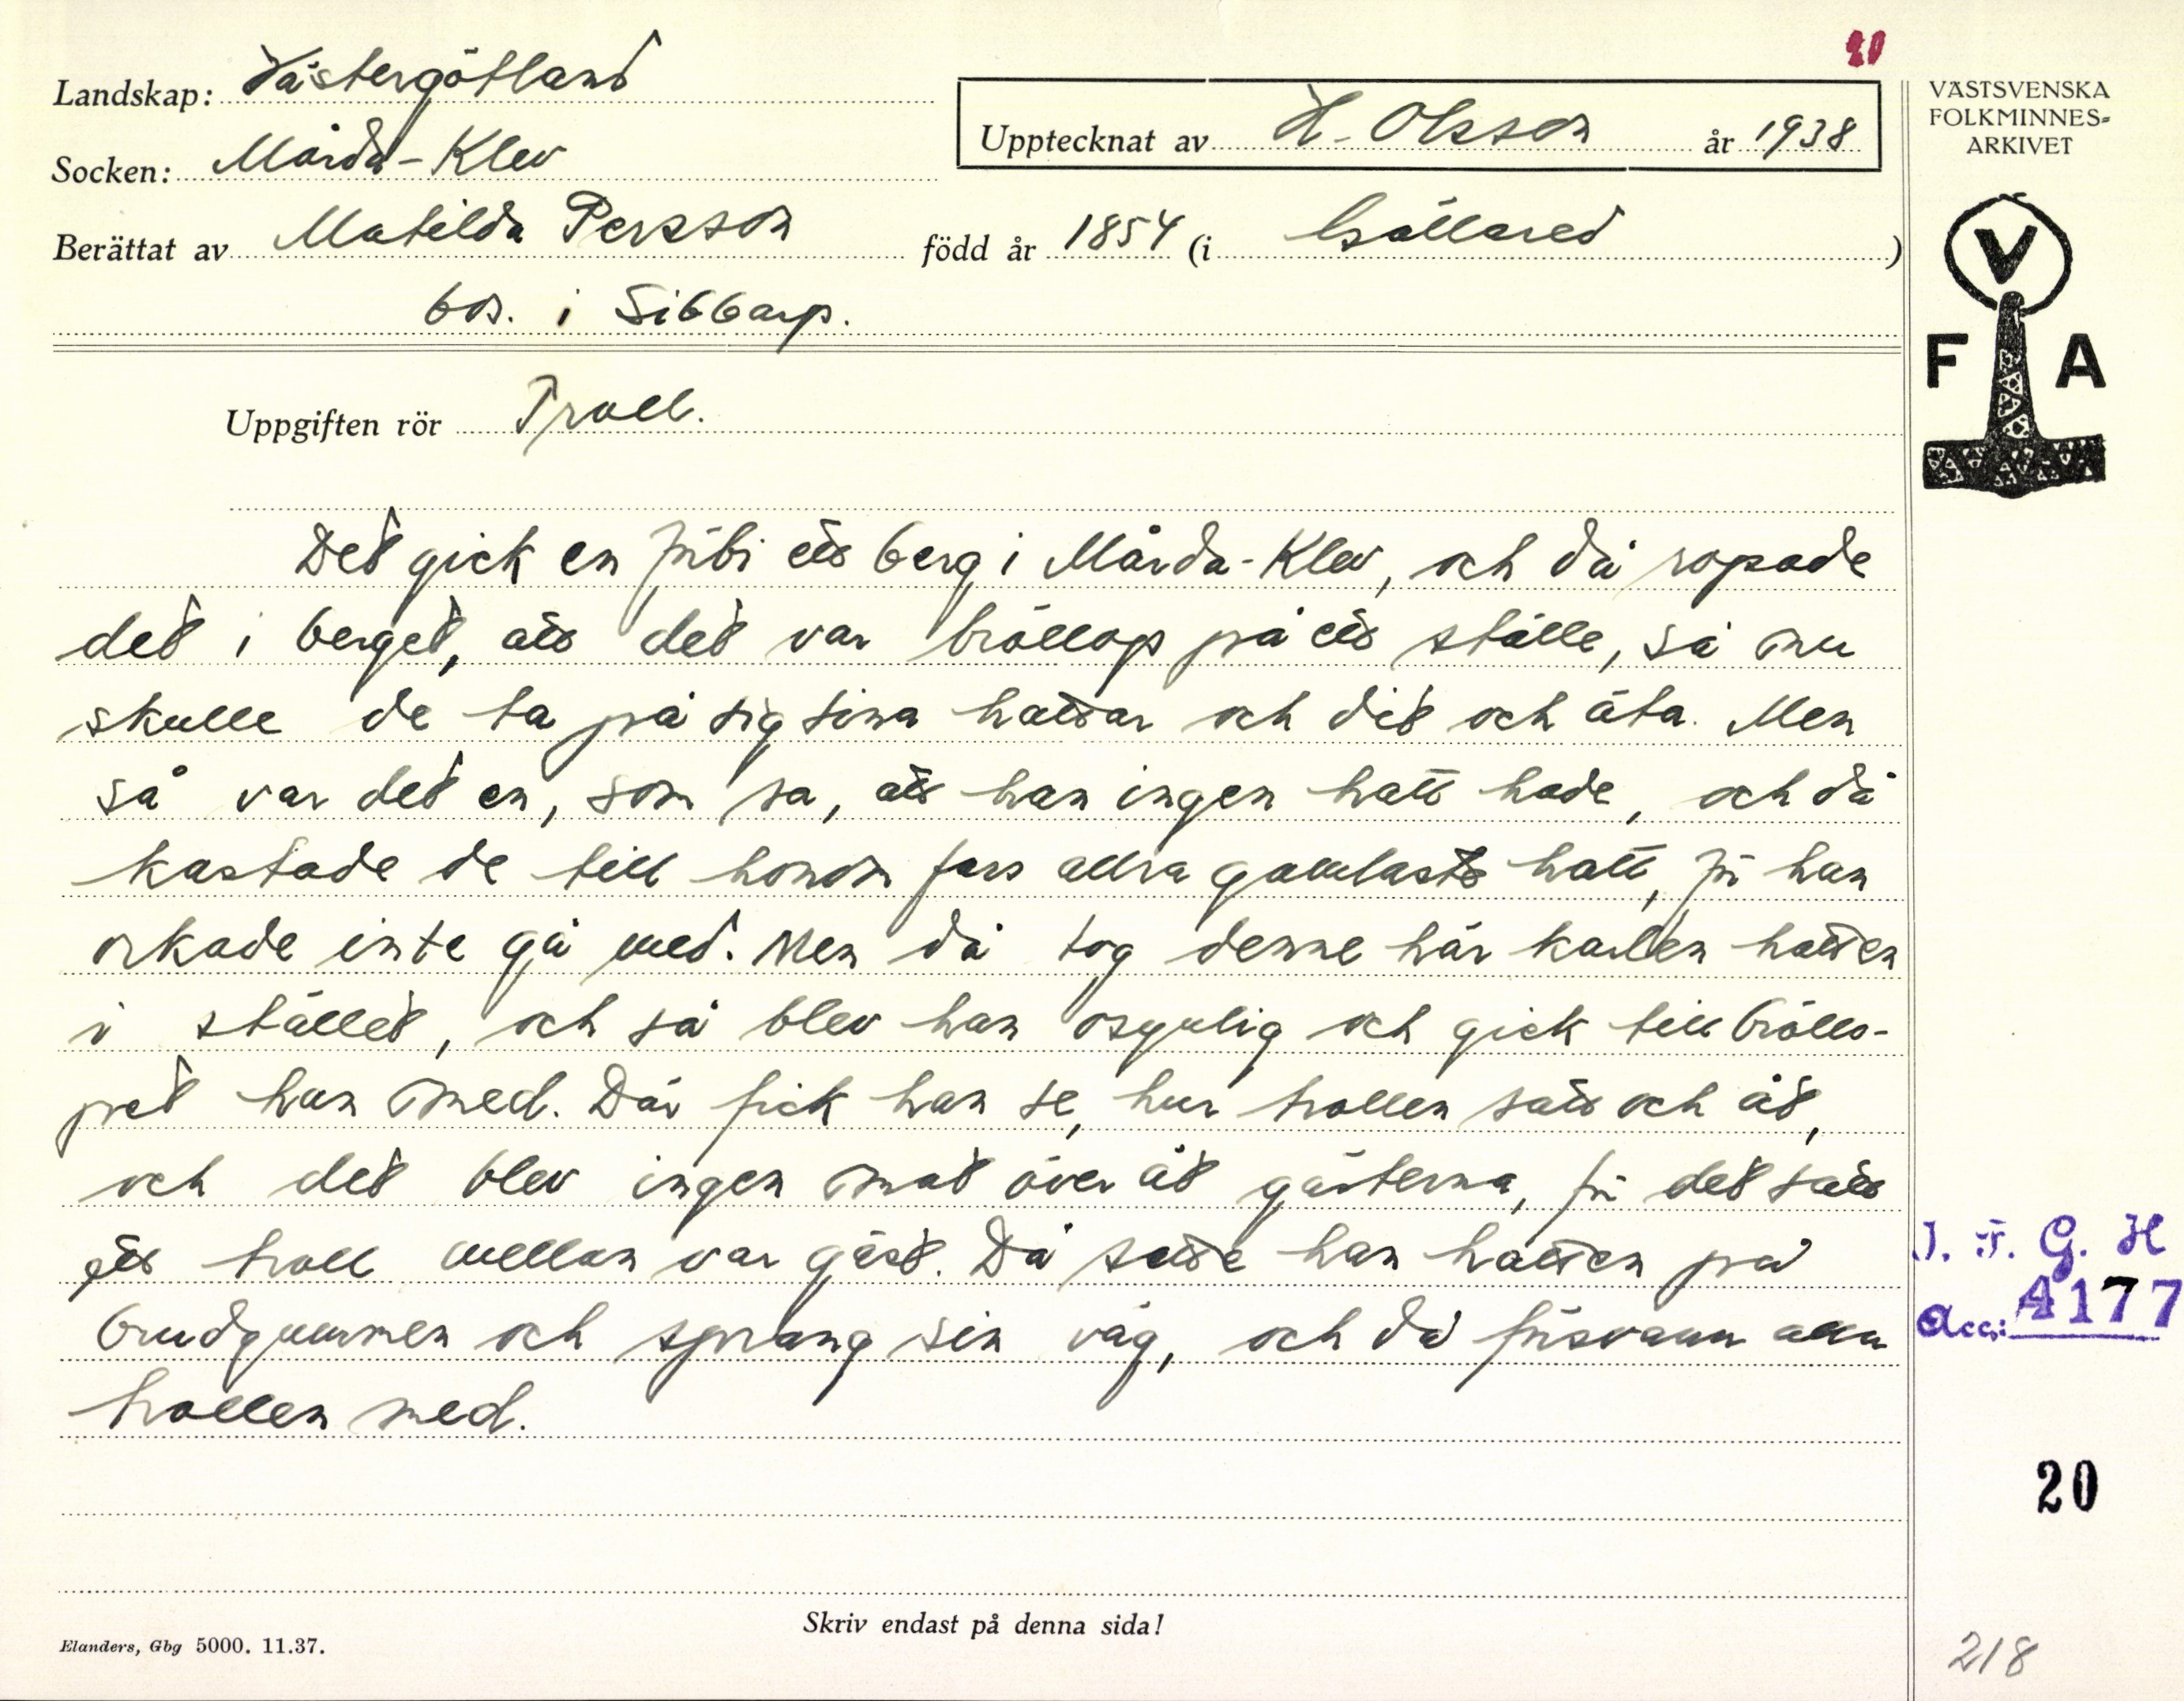 20
Landskap: Västergötland
Upptecknat av H. Olsson år 1938
VÄSTSVENSKA
FOLKMINNES-
ARKIVET
Socken: Mårda-Klev
Berättat av Matilda Persson född år 1854 (i Källared)
bos. i Sibbarp.
V
F A
Uppgiften rör Troll.
Det gick en förbi ett berg i Mårda-Klev, och då ropade
det i berget, att det var bröllop på ett ställe, så nu
skulle de ta på sig sina hattar och dit och äta. Men
så var det en, som sa, att han ingen hatt hade, och då
kastade de till honom fars allra gamlaste hatt, för han
orkade inte gå med. Men då tog denne här karlen hatten
i stället, och så blev han osynlig och gick till bröllo-
pet han med. Där fick han se, hur trollen satt och åt,
och det blev ingen mat över åt gästerna, för det satt
ett troll mellan var gäst. Då satte han hatten på
brudgummen och sprang sin väg, och då försvann alla
trollen med.
I. F. G. H
Acc: 4177
20
Skriv endast på denna sida!
Elanders, Gbg 5000. 11.37.
218